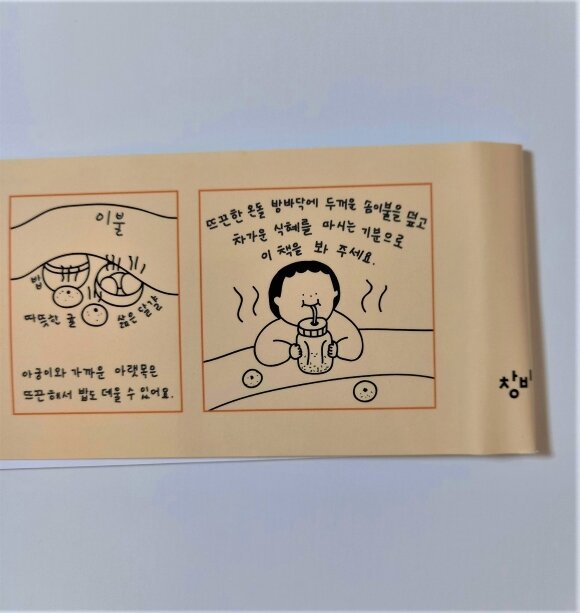 이불
밥
따뜻한 귤
삶은 달걀
아궁이와 가까운 아랫목은
뜨끈해서 밥도 데울 수 있어요.
뜨끈한 온돌 방바닥에 두꺼운 솜이불을 덮고
차가운 식혜를 마시는 기분으로
이 책을 봐 주세요.
창비